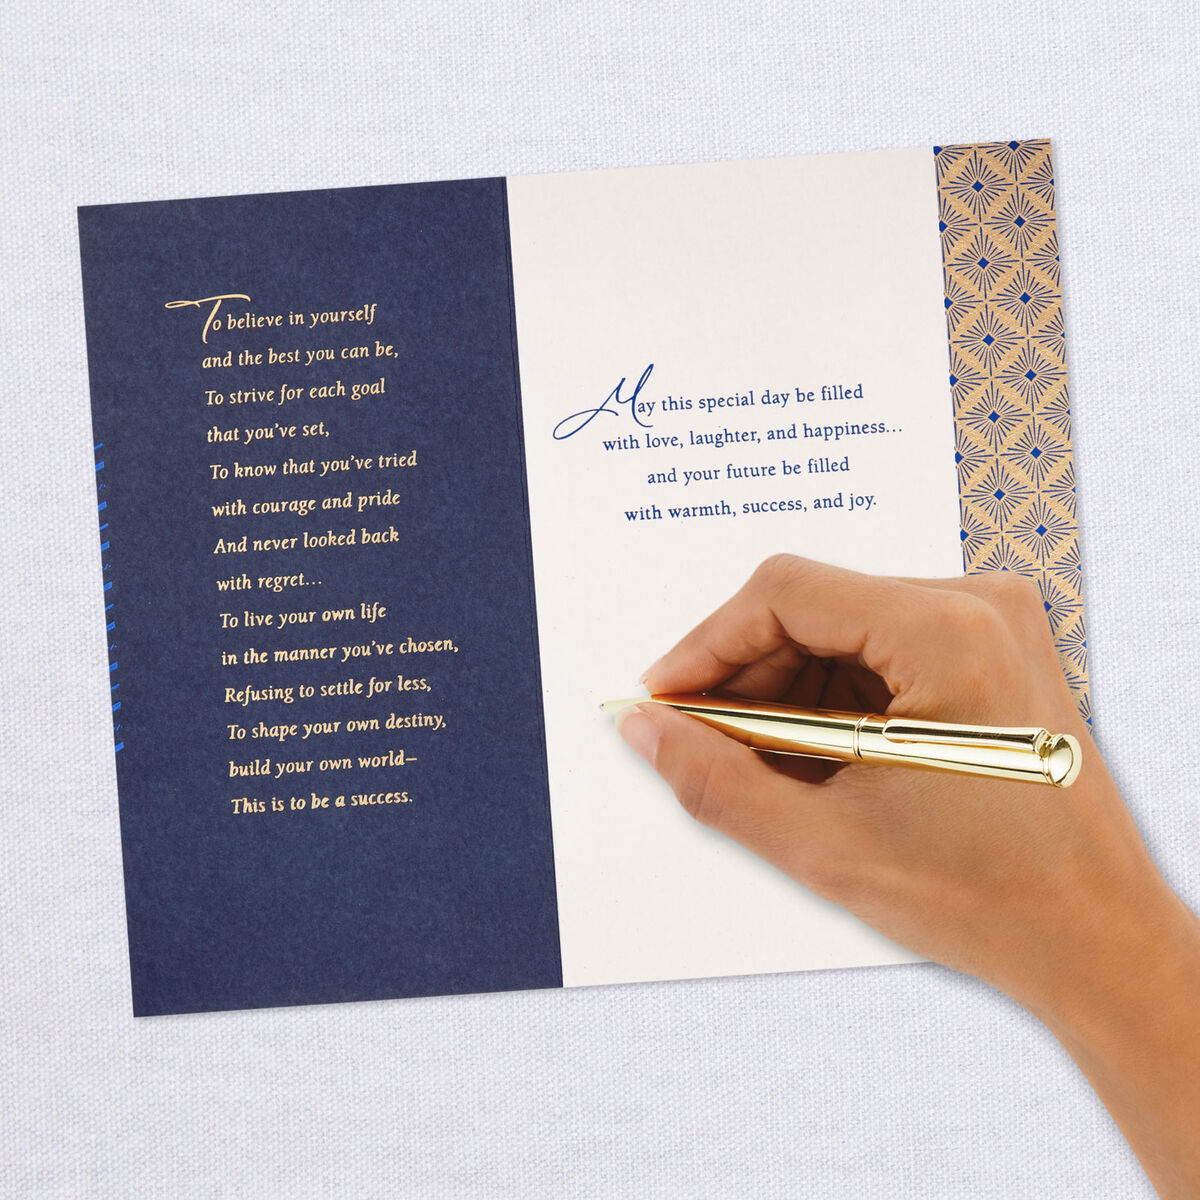 To believe in yourself
and the best you can be,
To strive for each goal
that you've set,
To know that you've tried
with courage and pride
And never looked back
with regret...
To live your own life
in the manner you've chosen,
Refusing to settle for less,
To shape your own destiny,
build your own world—
This is to be a success.
May this special day be filled
with love, laughter, and happiness...
and your future be filled
with warmth, success, and joy.